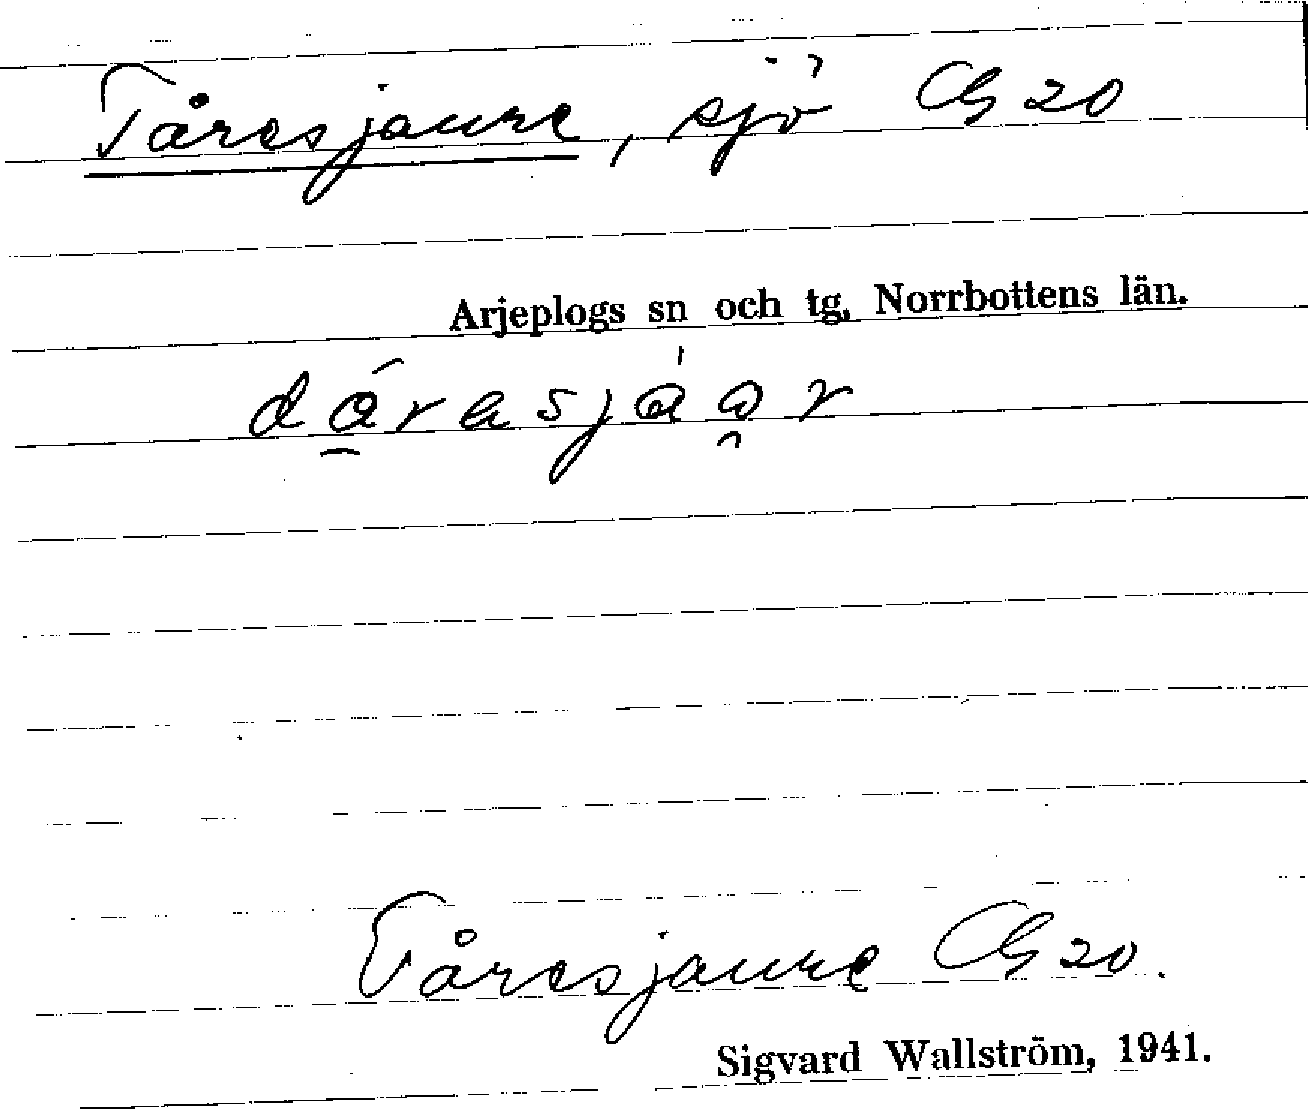 Tåresjaure, sjö G 20
Arjeplogs sn och tg, Norrbottens län.
Tåresjaure G 20.
Sigvard Wallström, 1941.